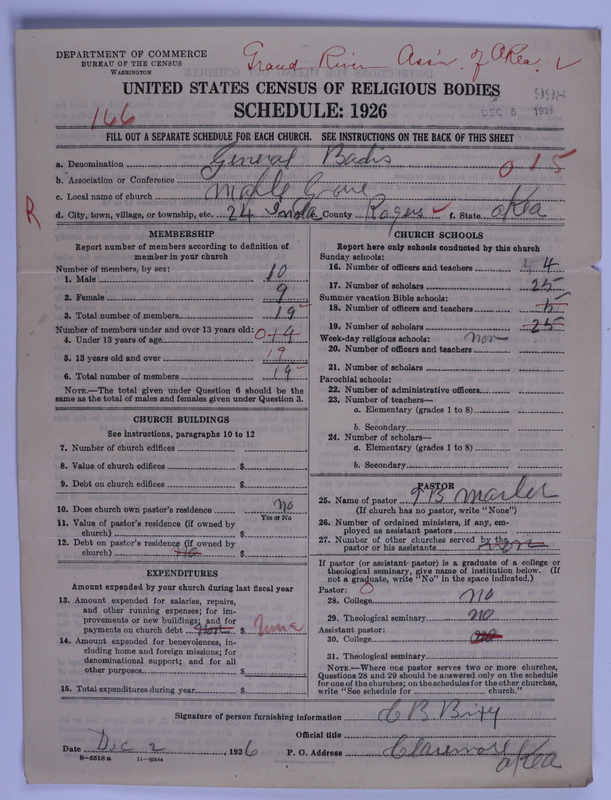 DEPARTMENT OF COMMERCE
BUREAU OF THE CENSUS
WASHINGTON
Grand River Ass'n. of Okla. ✓
UNITED STATES CENSUS OF RELIGIOUS BODIES
SCHEDULE: 1926
166
998
DEC 6 1926
FILL OUT A SEPARATE SCHEDULE FOR EACH CHURCH. SEE INSTRUCTIONS ON THE BACK OF THIS SHEET
a. Denomination General Badis 015
b. Association or Conference
c. Local name of church Maple Grove
R
d. City, town, village, or township, etc. 24 Inola County Rogers ✓ f. State Okla
MEMBERSHIP
Report number of members according to definition of
member in your church
Number of members, by sex:
1. Male 10
2. Female 9
3. Total number of members 19
Number of members under and over 13 years old:
4. Under 13 years of age 0 19
5. 13 years old and over 19
6. Total number of members 19
NOTE.—The total given under Question 6 should be
same as the total of males and females given under Question 3.
CHURCH BUILDINGS
See instructions, paragraphs 10 to 12
7. Number of church edifices
8. Value of church edifices $
9. Debt on church edifices $
10. Does church own pastor's residence no
Yes or No
11. Value of pastor's residence (if owned by
church) $
12. Debt on pastor's residence (if owned by
church) no $
EXPENDITURES
Amount expended by church during last fiscal year
13. Amount expended for salaries, repairs,
and other running expenses; for im-
provements or new buildings; and for
payments on church debt non $ None
14. Amount expended for benevolences, in-
cluding home and foreign missions; for
denominational support; and for all
other purposes $
15. Total expenditures during year $
CHURCH SCHOOLS
Report here only schools conducted by this church
Sunday schools:
16. Number of officers and teachers 4
17. Number of scholars 25
Summer vacation Bible schools:
18. Number of officers and teachers 5
19. Number of scholars 25
Week-day religious schools: non
20. Number of officers and teachers
21. Number of scholars
Parochial schools:
22. Number of administrative officers
23. Number of teachers—
a. Elementary (grades 1 to 8)
b. Secondary
24. Number of scholars—
a. Elementary (grades 1 to 8)
b. Secondary
PASTOR
25. Name of pastor
(If church has no pastor, write "None")
26. Number of ordained ministers, if any, em-
ployed as assistant pastors
27. Number of other churches served by the
pastor or his assistants non
If pastor (or assistant pastor) is a graduate of a college or
theological seminary, give name of institution below. (If
not a graduate, write "No" in the space indicated.)
Pastor: 0
28. College no
29. Theological seminary no
Assistant pastor:
30. College no
31. Theological seminary
NOTE.—Where one pastor serves two or more churches,
Questions 28 and 29 should be answered only on the schedule
for one of the churches; on the schedules for the other churches,
write "See schedule for church."
Signature of person furnishing information C B Bixy
Official title
Date Dec 2, 1926 P. O. Address Claremore Okla
8—5518a 11—9004a